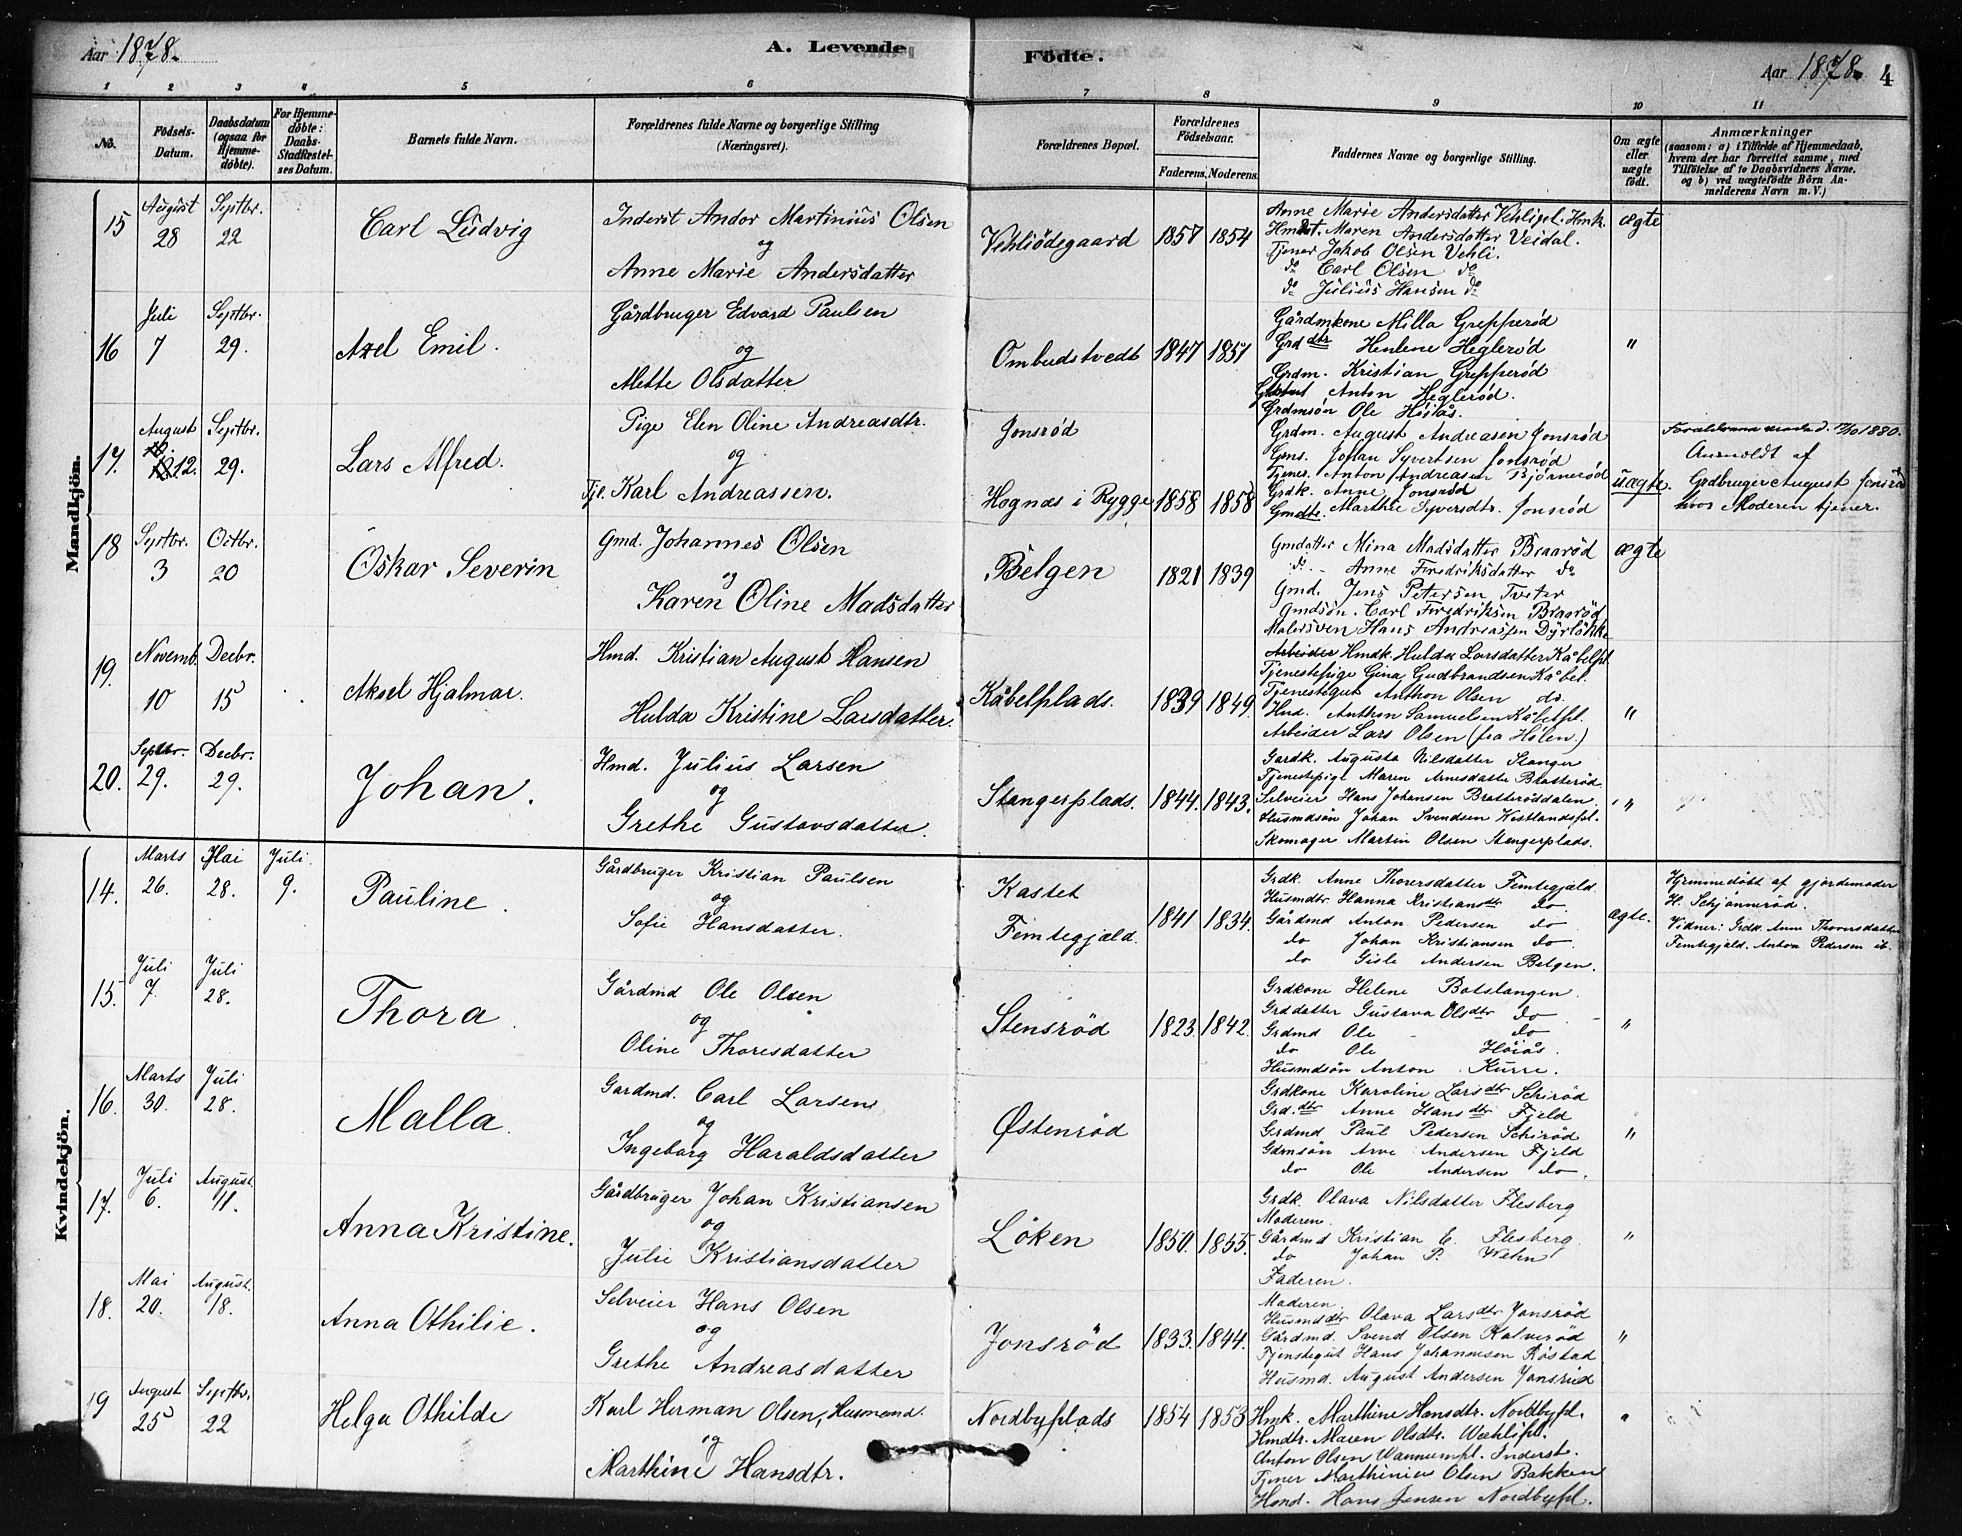 Aar 1878.
A. Levende Födte.
Aar 1878. 4
1 2 3 4 5 6 7 8 9 10 11
No.
Födsels-Datum.
Daabsdatum (ogsaa for Hjemme-döbte).
For Hjemme-döbte: Daabs-Stadfæstel-ses Datum.
Barnets fulde Navn.
Forældrenes fulde Navne og borgerlige Stilling (Næringsvei).
Forældrenes Bopæl.
Forældrenes Födselsaar.
Faderens. Moderens.
Faddernes Navne og borgerlige Stilling.
Om ægte eller uægte födt.
Anmærkninger
(saasom: a) i Tilfælde af Hjemmedaab,
hvem der har forrettet samme, med
Tilföielse af to Daabsvidners Navne,
og b) ved uægtefödte Börn An-
melderens Navn m. V.)
Mandkjön.
15 August 28 Septbr. 22
Carl Ludvig
Inderst Andor Martinius Olsen
og
Anne Marie Andersdatter
Vehliödegaard 1857 1854
Anne Marie Andersdatter Vehlipl. Hmk.
Maren Andersdatter Veidal.
Tjener Jakob Olsen Vehli.
do Carl Olsen do
do Julius Hansen do
ægte
16 Juli 7 Septbr. 29.
Axel Emil.
Gårdbruger Edvard Paulsen
og
Mette Olsdatter
Ombudstvedt 1847 1851
Gårdmkone Milla Grepperød
Grddtr Henlene Heglerød
Grdm. Kristian Grepperød
Anton Heglerød.
Grdmsøn Ole Høiås.
"
17. August 12. Septbr. 29.
Lars Alfred.
Pige Elen Oline Andreasdtr.
og
Tje. Karl Andreassen.
Jonsrød
Hognæs i Rygge 1858 1858
Grdm. August Andreasen Jonsrød
Gms. Johan Syvertsen Jonsrød
Tjener. Anton Andreasen Bjørnerød
Grdk. Anne Jonsrød
Gmdtr. Marthe Syversdtr. Jonsrød
uægte.
1880.
Anmeldt af
Grdbruger August Jonsrød
hvos Moderen tjener.
18 Septbr. 3 Octbr. 20
Oskar Severin
Gmd. Johannes Olsen
og
Karen Oline Madsdatter
Belgen 1821 1839
Gmdatter Mina Madsdatter Braarød
do Anne Fredriksdatter do
Gmd. Jens Petersen Tveter
Gmdsön. Carl Fredriksen Braarød
Malersven Hans Andreassen Dyrløkke
ægte
19. Novemb. 10 Decbr. 15
Aksel Hjalmar.
Hmd. Kristian August Hansen
Hulda Kristine Larsdatter.
Kåbelplads. 1839 1849.
Arbeider Hmdk. Hulda Larsdatter Kåbelpl.
Tjenestepige Gina Gudbrandsen Kåbel.
Tjenestegut Anthon Olsen do.
Hmd. Anthon Samuelsen Kåbelpl.
Arbeider Lars Olsen (fra Hølen.)
"
20. Septbr. 29. Decbr. 29.
Johan.
Hmd. Julius Larsen
og
Grethe Gustavsdatter.
Stangerplads. 1844. 1843.
Gardk. Augusta Nilsdatter Stanger
Tjenestepige Maren Arnesdatter Bratterød
Selveier Hans Johansen Bratterøddalen.
Husmdsön Johan Svendsen Kistlandspl.
Skomager Martin Olsen Stangerplads.
"
Kvindekjön.
14. Marts 26. Mai 28. Juli 9.
Pauline.
Gårdbruger Kristian Paulsen
og
Sofie Hansdatter.
Kastet
Femtegjæld. 1841 1834.
Grdk. Anne Thorersdatter Femtegjæld.
Husmdtr. Hanna Kristiansdtr do
Gårdmd Anton Pedersen do
do Johan Kristiansen do.
do Gisle Andersen Belgen.
ægte.
Hjemmedøbt af gjordemoder
H. Schjønnerød.
Vidner: Grdk. Anne Thorersdatter
Femtegjæld. Anton Pedersen ib.
15. Juli 7. Juli 28.
Thora
Gårdmd Ole Olsen
og
Oline Thoresdatter
Stensrød 1823. 1842.
Grdkone Helene Botslangen.
Grddatter Gustava Olsdtr do
Grdmd Ole do
do Ole Høiås.
Husmdsön Anton Kurre.
"
16. Marts 30. Juli 28.
Malla.
Gardmd. Carl Larsen
og
Ingeborg Haraldsdatter
Østenrød
Grdkone Karoline Larsdtr Schirød
Grd.dtr Anne Hansdtr Fjeld
Grdmd Paul Pedersen Schirød
Gdmsön Arve Andersen Fjeld
do Ole Andersen do.
"
17. Juli 6. August 11.
Anna Kristine.
Gårdbruger Johan Kristiansen
og
Julie Kristiansdatter
Løken 1850. 1855.
Grdk. Olava Nilsdatter Flesberg
Moderen.
Gårdmd Kristian E. Flesberg.
do Johan P. Wehn
Faderen.
"
18. Mai 20. August 18.
Anna Othilie.
Selveier Hans Olsen
og
Grethe Andreasdatter
Jonsrød 1833. 1844.
Moderen.
Husmddtr Olava Larsdtr Jonsrød
Gårdmd. Svend Olsen Kalverød
Tjenstegut Hans Johannesen Røstad
Husmd. August Andersen Jonsrød
"
19 August 25 Septbr. 22
Helga Othilde
Karl Herman Olsen, Husmand.
og
Marthine Hansdtr.
Nordbyplads 1854 1853
Hmk. Marthine Hansdtr. Nordbypl.
Hmdtr. Maren Olsdtr. Wæhlipl.
Anton Olsen Wannempl. Inderst.
Tjener Marthinius Olsen Bakken
Hmd. Hans Jensen Nordbypl.
"